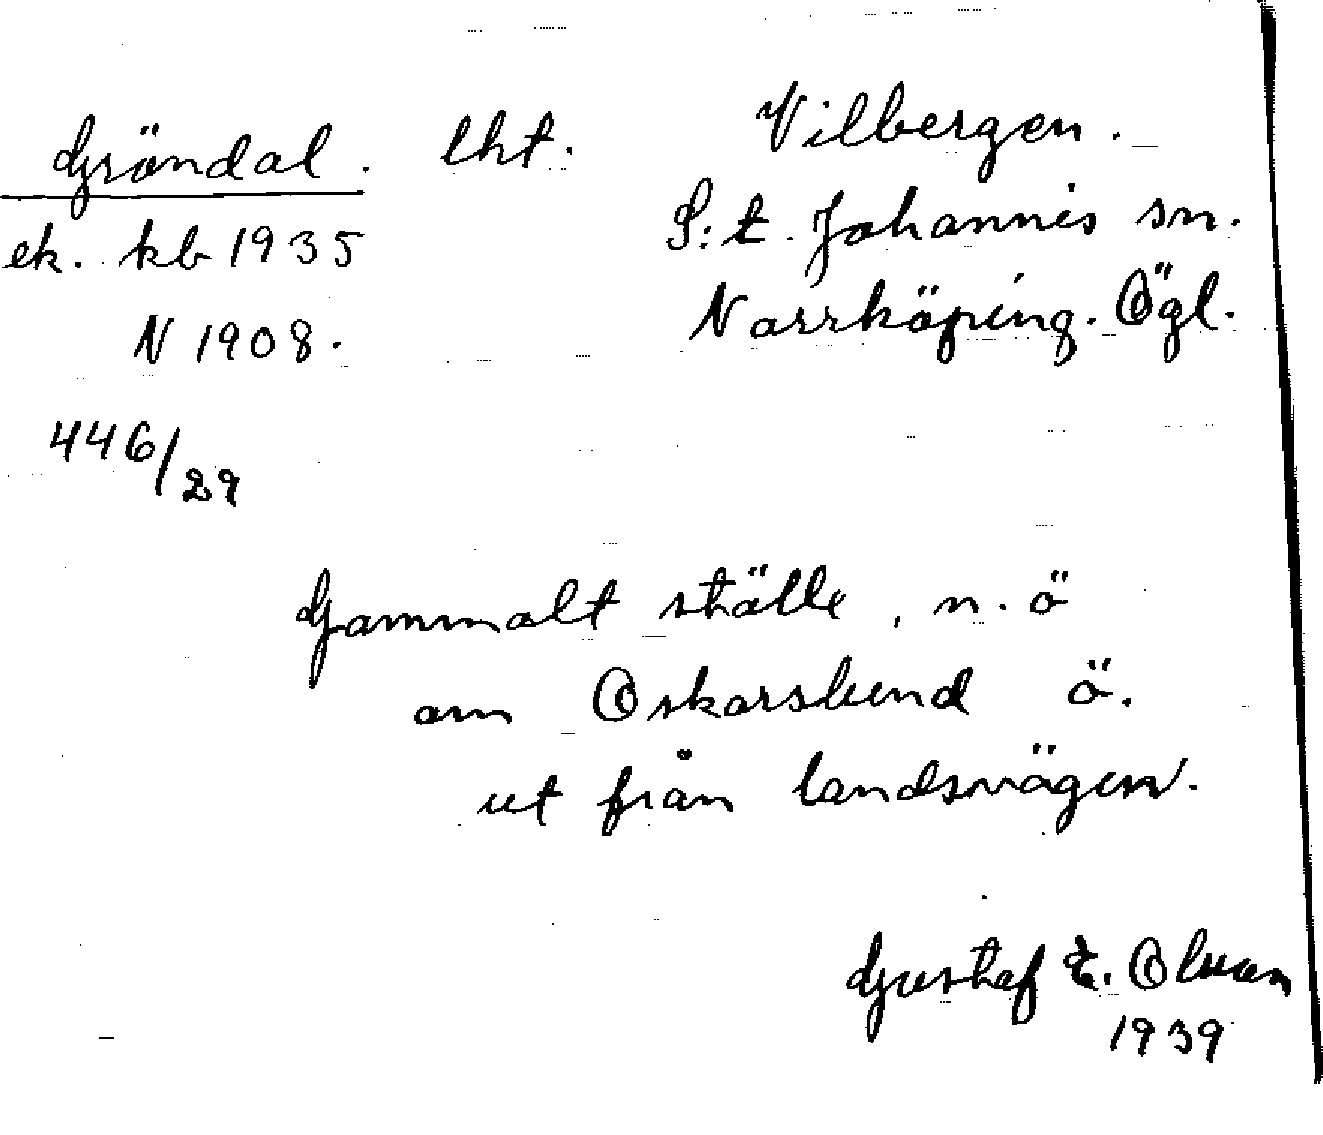 Gröndal. lht. Vilbergen.
ek. kb 1935 S:t Johannis sn.
N 1908. Norrköping. Ögl.
446/29
Gammalt ställe, n. ö
om Oskarslund ö.
ut från landsvägen.
Gustaf E. Olsson
1939